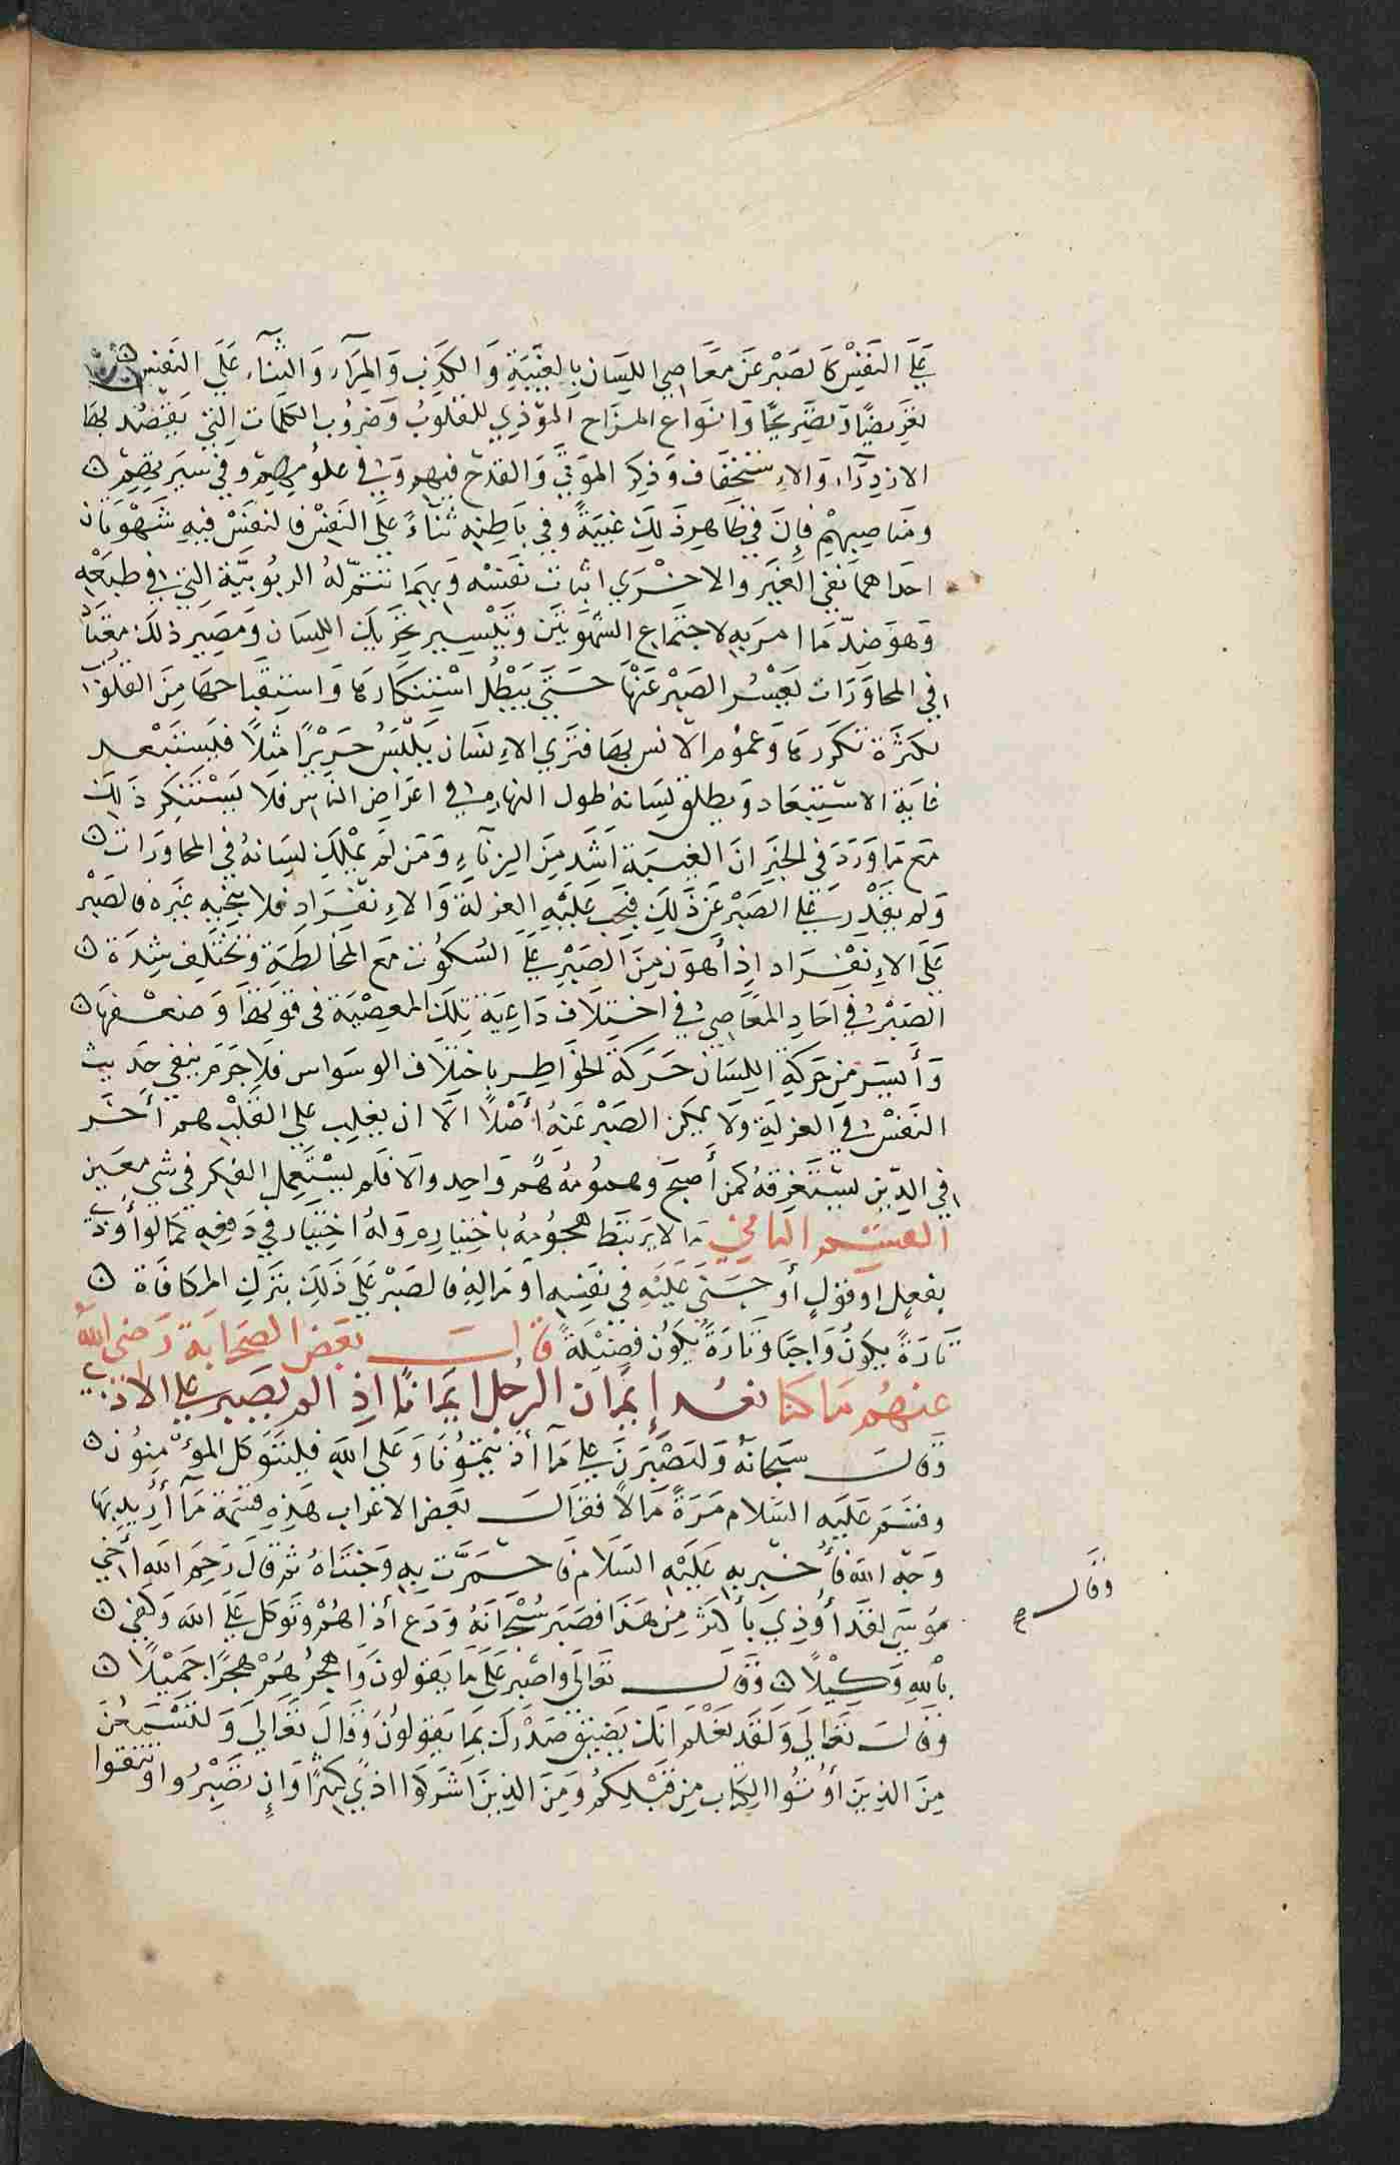 على النفس كالصبر عن معاصي اللسان بالغيبة والكذب والمرآء والثناء على النفس
تعريضًا وتصريحًا وانواع المزاح المؤذي للقلوب وضروب الكلمات التي يقصد بها
الازدرآء والاستخفاف وذكر الموتى والقدح فيهم وفي علومهم وفي سيرتهم
ومناصبهم فان في ظاهر ذلك غيبةً وفي باطنه ثناءً على النفس فالنفس فيه شهوتان
احداهما نفي الغير والاخرى اثبات نفسه وبهما تتم له الربوبية التي في طبعه
وهو ضد ما امر به لاجتماع الشهوتين وتيسير تحريك اللسان ومصير ذلك معتاد
في المحاورات يعسر الصبر عنها حتى يبطل استنكارها واستقباحها من القلوب
لكثرة تكررها وعموم الانس بها فترى الانسان يلبس حريرًا مثلاً فيستبعد
غاية الاستبعاد ويطلق لسانه طول النهار في اعراض الناس فلا يستنكر ذلك
مع ما ورد في الخبر ان الغيبة اشد من الزنآء ومن لم يملك لسانه في المحاورات
ولم يقدر على الصبر عن ذلك فيجب عليه العزلة والانفراد فلا ينجيه غيره فالصبر
على الانفراد اذًا هون من الصبر على السكوت مع المخالطة وتختلف شدة
الصبر في احاد المعاصي في اختلاف داعية تلك المعصية في قوتها وضعفها
وأيسر من حركة اللسان حركة الخواطر باختلاف الوسواس فلا جرم يبقى حديث
النفس في العزلة ولا يمكن الصبر عنه أصلاً الا ان يغلب على القلب هم أخر
في الدين يستغرقه كمن أصبح وهمومه هم واحد والا فلم يستعمل الفكر في شي معين
القسم الثاني ما لا يرتبط هجومه باختياره وله اختيار في دفعه كما لو أوذي
بفعل او قول أو جنى عليه في نفسه او ماله فالصبر على ذلك بترك المكافاة
تارةً يكون واجبًا وتارةً يكون فضيلةً قال بعض الصحابة رضي الله
عنهم ما كنا نعد إيمان الرجل ايمانًا اذا لم يصبر على الاذى
وقال سبحانه ولنصبرن على مآ أذيتمونا وعلى الله فليتوكل المؤمنون
وقسم عليه السلام مرةً مالاً فقال بعض الاعراب هذه قسمة مآ أريد بها
وجه الله فأخبر به عليه السلام فاحمرت به وجنتاه ثم قال رحم الله أخي
موسى لقد أوذي بأكثر من هذا فصبر سبحانه ودع أذاهم وتوكل على الله وكفى
وقال صح
بالله وكيلاً وقال تعالى واصبر على ما يقولون واهجرهم هجرًا جميلاً
وقال تعالى ولقد نعلم انك يضيق صدرك بما يقولون وقال تعالى ولتسمعن
من الذين أوتوا الكتاب من قبلكم ومن الذين اشركوا اذى كثيرًا وإن تصبروا وتتقوا